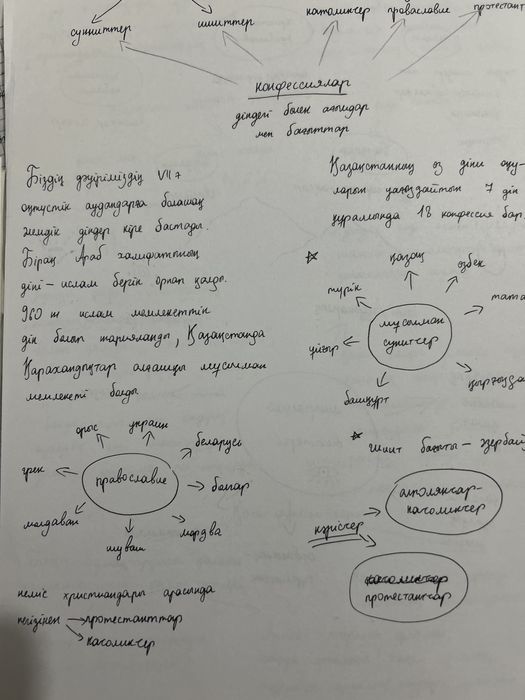 сунниттер
шииттер
католиктер
православие
протестант
конфессиялар
діндегі бөлек ағымдар
мен бағыттар
Біздің дәуіріміздің VII ғ
оңтүстік аудандарға болашақ
әлемдік діндер кіре бастады.
Бірақ Араб халифатының
діні – ислам берік орнап қалды.
960 ж ислам мемлекеттік
дін болып жарияланды, Қазақстанда
Қарахандықтар алғашқы мусылман
мемлекеті болды
Қазақстанның өз діни оқу-
ларын уағыздайтын 7 дін
құрамында 18 конфессия бар.
қазақ
өзбек
түрік
тата
мусылман
суниттер
ұйғыр
қырғызда
башқұрт
шиит бағыты – әзербай
орыс
украин
беларусь
грек
православие
болгар
молдаван
мордва
чуваш
неміс христиандары арасында
негізінен → протестанттар
католиктер
кәрістер
католиктер
протестанттар